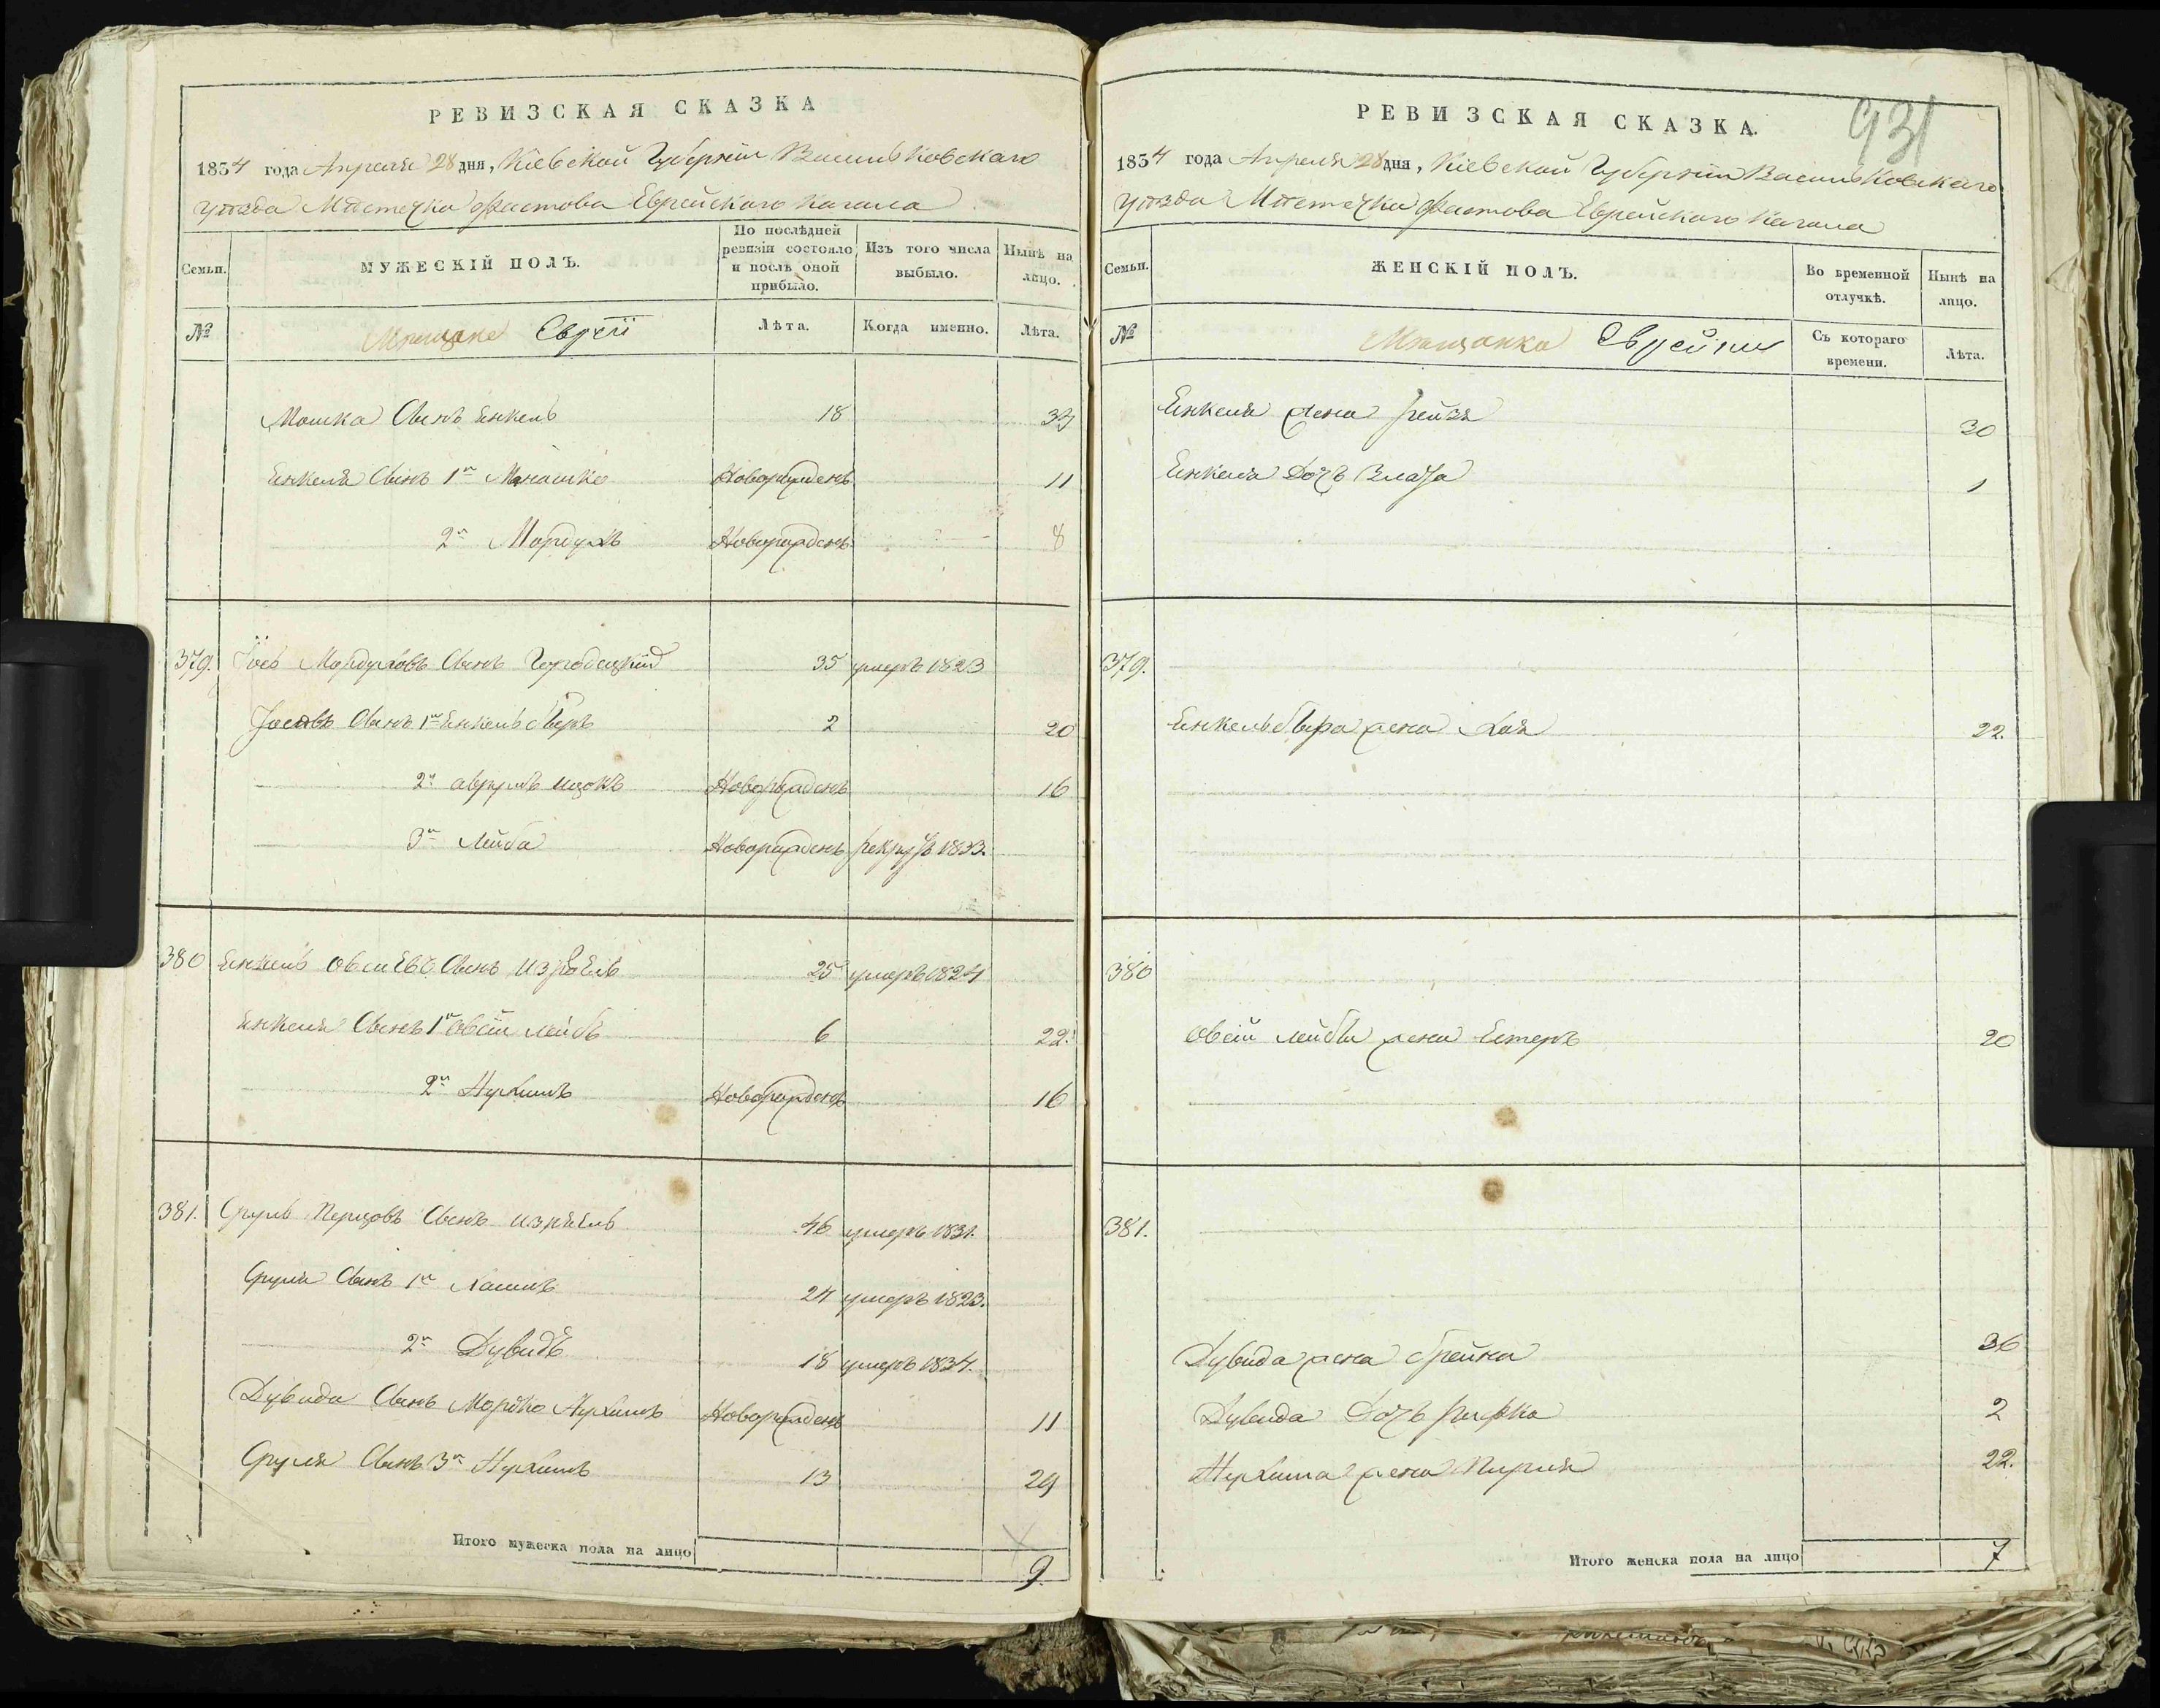 РЕВИЗСКАЯ СКАЗКА
1834 года Апреля 28 дня, Кіевской Губерніи Васильковскаго
уѣзда Мѣстечка Фастова Еврейскаго Кагала
Семьи.
МУЖЕСКІЙ ПОЛЪ.
По послѣдней ревизіи состояло и послѣ оной прибыло.
Изъ того числа выбыло.
Нынѣ на лицо.
№
Мещане Евреи
Лѣта.
Когда именно.
Лѣта.
Мошка Сынъ Енкель 18 33
Енкеля Сынъ 1й Монашко Новорожденъ 11
2й Мордухъ Новорожденъ 8
379. Іось Мордуховъ Сынъ Городецкій 35 умеръ 1823
Іосевъ Сынъ 1й Енкель Сперъ 2 20
2й Аврумъ Ицокъ Новорожденъ 16
3й Лейба Новорожденъ рекрутъ 1833.
380 Енкель Овсиевъ Сынъ Израель 25 умеръ 1824
Енкеля Сынъ 1й Овсій Лейбъ 6 22.
2й Нухимъ Новорожденъ 16
381. Сруль Перцовъ Сынъ Израель 46 умеръ 1831.
Сруля Сынъ 1й 24 умеръ 1823.
2й Дувидъ 18 умеръ 1834.
Дувида Сынъ Мордко Нухимъ Новорожденъ 11
Сруля Сынъ 3й Нухимъ 13 29
Итого мужеска пола на лицо 9.
РЕВИЗСКАЯ СКАЗКА.
931
1834 года Апреля 28 дня, Кіевской Губерніи Васильковскаго
уѣзда Мѣстечка Фастова Еврейскаго Кагала
Семьи.
ЖЕНСКІЙ ПОЛЪ.
Во временной отлучкѣ.
Нынѣ на лицо.
№
Мещанки Еврейки
Съ котораго времени.
Лѣта.
Енкеля жена Рейзя 30
Енкеля Дочъ Злата 1
379.
Енкель жена Хая 22.
380
Овсій Лейбы жена Естеръ 20
381.
Дувида жена Фрейна 36
Дувида Дочъ Рифка 2
Нухима жена 22.
Итого женска пола на лицо 7